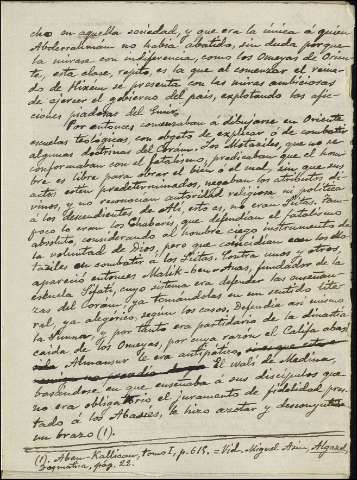 cho en aquella sociedad, y que era la única á quien
Abderrahmán no había abatido, sin duda porque
la mirase con indiferencia, como los Omeyas de Orien-
te, esta clase, repito, es la que al comenzar el reina-
do de Hixém se presenta con las miras ambiciosas
de ejercer el gobierno del país, explotando las afi-
ciones piadosas del Emir.
Por entonces comenzaban á dibujarse en Oriente
escuelas teológicas, con objeto de explicar ó de combatir
algunas doctrinas del Corán. Los Motaziles, que no se
conformaban con el fatalismo, predicaban que el hom-
bre es libre para obrar el bien ó el mal, sin que sus
actos estén predeterminados, negaban los atributos di-
vinos, y no reconocían autoridad religiosa ni política
á los descendientes de Alí, esto es, no eran Xiítas. Tam-
poco lo eran los Chabaríes, que defendían el fatalismo
absoluto, considerando al hombre ciego instrumento de
la voluntad de Dios, pero que coincidían con los Mo-
taziles en combatir á los Xiítas. Contra unos y otros
apareció entonces Málik-ben-Anas, fundador de la
escuela Sifatí, cuyo sistema era defender las enseñan-
zas del Corán, ya tomándolas en un sentido lite-
ral, ya alegórico, según los casos. Defendía así mismo
la Sunna, y por tanto era partidario de la dinastía
caída de los Omeyas, por cuya razón el Califa abasí
Almansur le era antipático,
El Walí de Medina,
basándose en que enseñaba á sus discípulos que
no era obligatorio el juramento de fidelidad pres-
tado á los Abasíes, le hizo azotar y descoyuntar
un brazo (1).
(1). Aben-Kallican, tomo I, p. 615. = Vid. Miguel Asín, Algazel,
Dogmática, pág. 22.